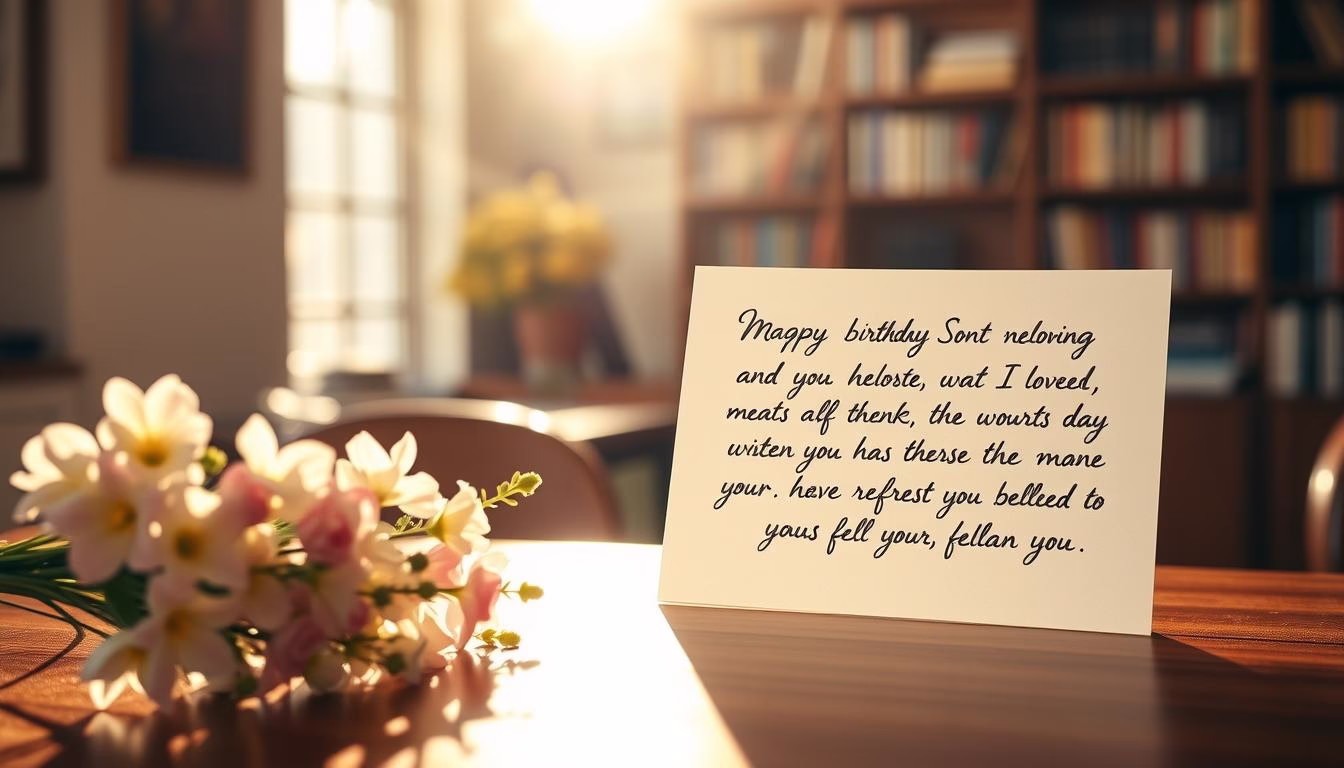 Maqpy birthday Sont neloving
and you heloste, wat I loveed,
meats alf thenk, the wourts day
witen you has therse the mane
your. heve refrest you belleed to
yous fell your, fellan you.